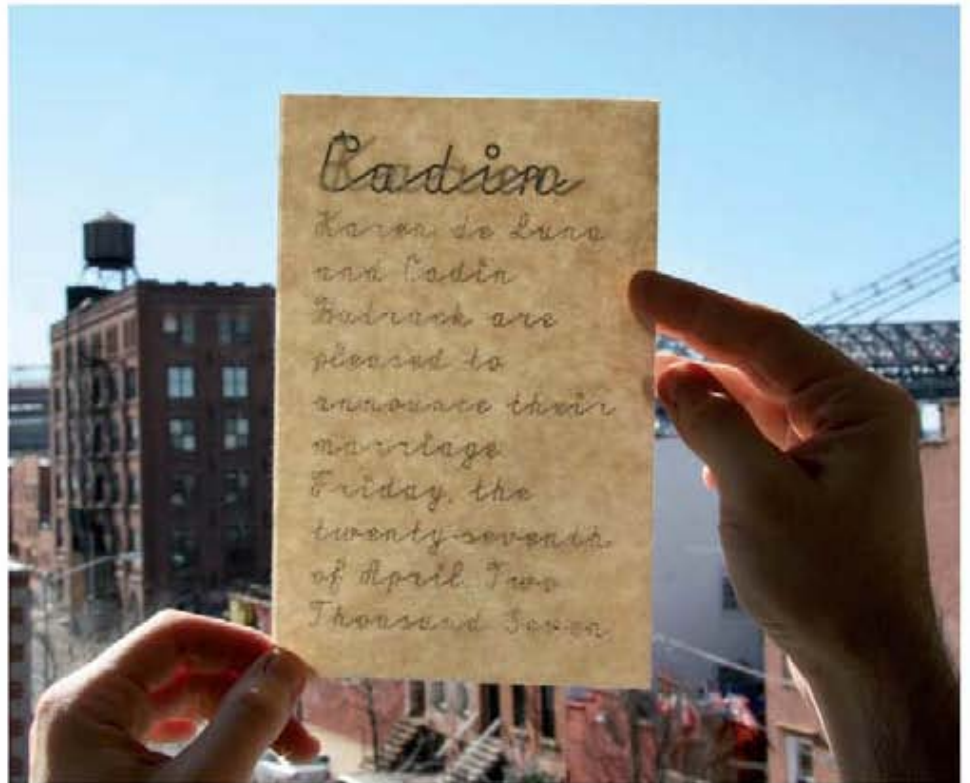 Cadin
Karen de Luna
and Cadin
are
pleased to
announce their
marriage
Friday, the
twenty-seventh
of April Two
Thousand Seven